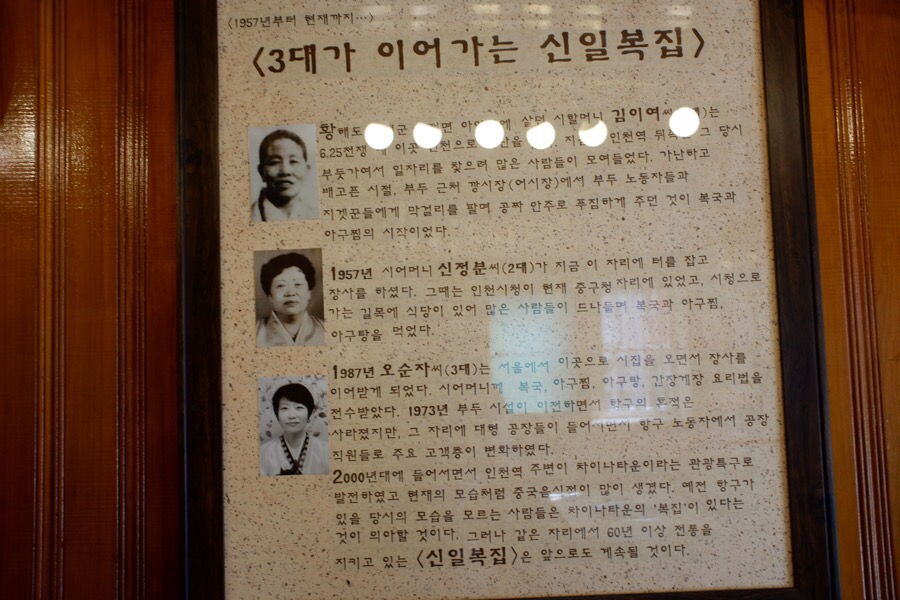 〈1957년부터 현재까지...〉
〈3대가 이어가는 신일복집〉
황해도 살던 시할머니 김이여 는
6.25전쟁 이곳 인천으로 인천역 그 당시
부둣가여서 일자리를 찾으려 많은 사람들이 모여들었다. 가난하고
배고픈 시절, 부두 근처 깡시장(어시장)에서 부두 노동자들과
지겟꾼들에게 막걸리를 팔며 공짜 안주로 푸짐하게 주던 것이 복국과
아구찜의 시작이었다.
1957년 시어머니 신정분씨(2대)가 지금 이 자리에 터를 잡고
장사를 하셨다. 그때는 인천시청이 현재 중구청자리에 있었고, 시청으로
가는 길목에 식당이 있어 많은 사람들이 드나들며 복국과 아구찜,
아구탕을 먹었다.
1987년 오순자씨(3대)는 서울에서 이곳으로 시집을 오면서 장사를
이어받게 되었다. 시어머니께 복국, 아구찜, 아구탕, 간장게장 요리법을
전수받았다. 1973년 부두 시설이 이전하면서 항구의 흔적은
사라졌지만, 그 자리에 대형 공장들이 들어서면서 항구 노동자에서 공장
직원들로 주요 고객층이 변화하였다.
2000년대에 들어서면서 인천역 주변이 차이나타운이라는 관광특구로
발전하였고 현재의 모습처럼 중국음식점이 많이 생겼다. 예전 항구가
있을 당시의 모습을 모르는 사람들은 차이나타운의 '복집'이 있다는
것이 의아할 것이다. 그러나 같은 자리에서 60년 이상 전통을
지키고 있는 〈신일복집〉은 앞으로도 계속될 것이다.